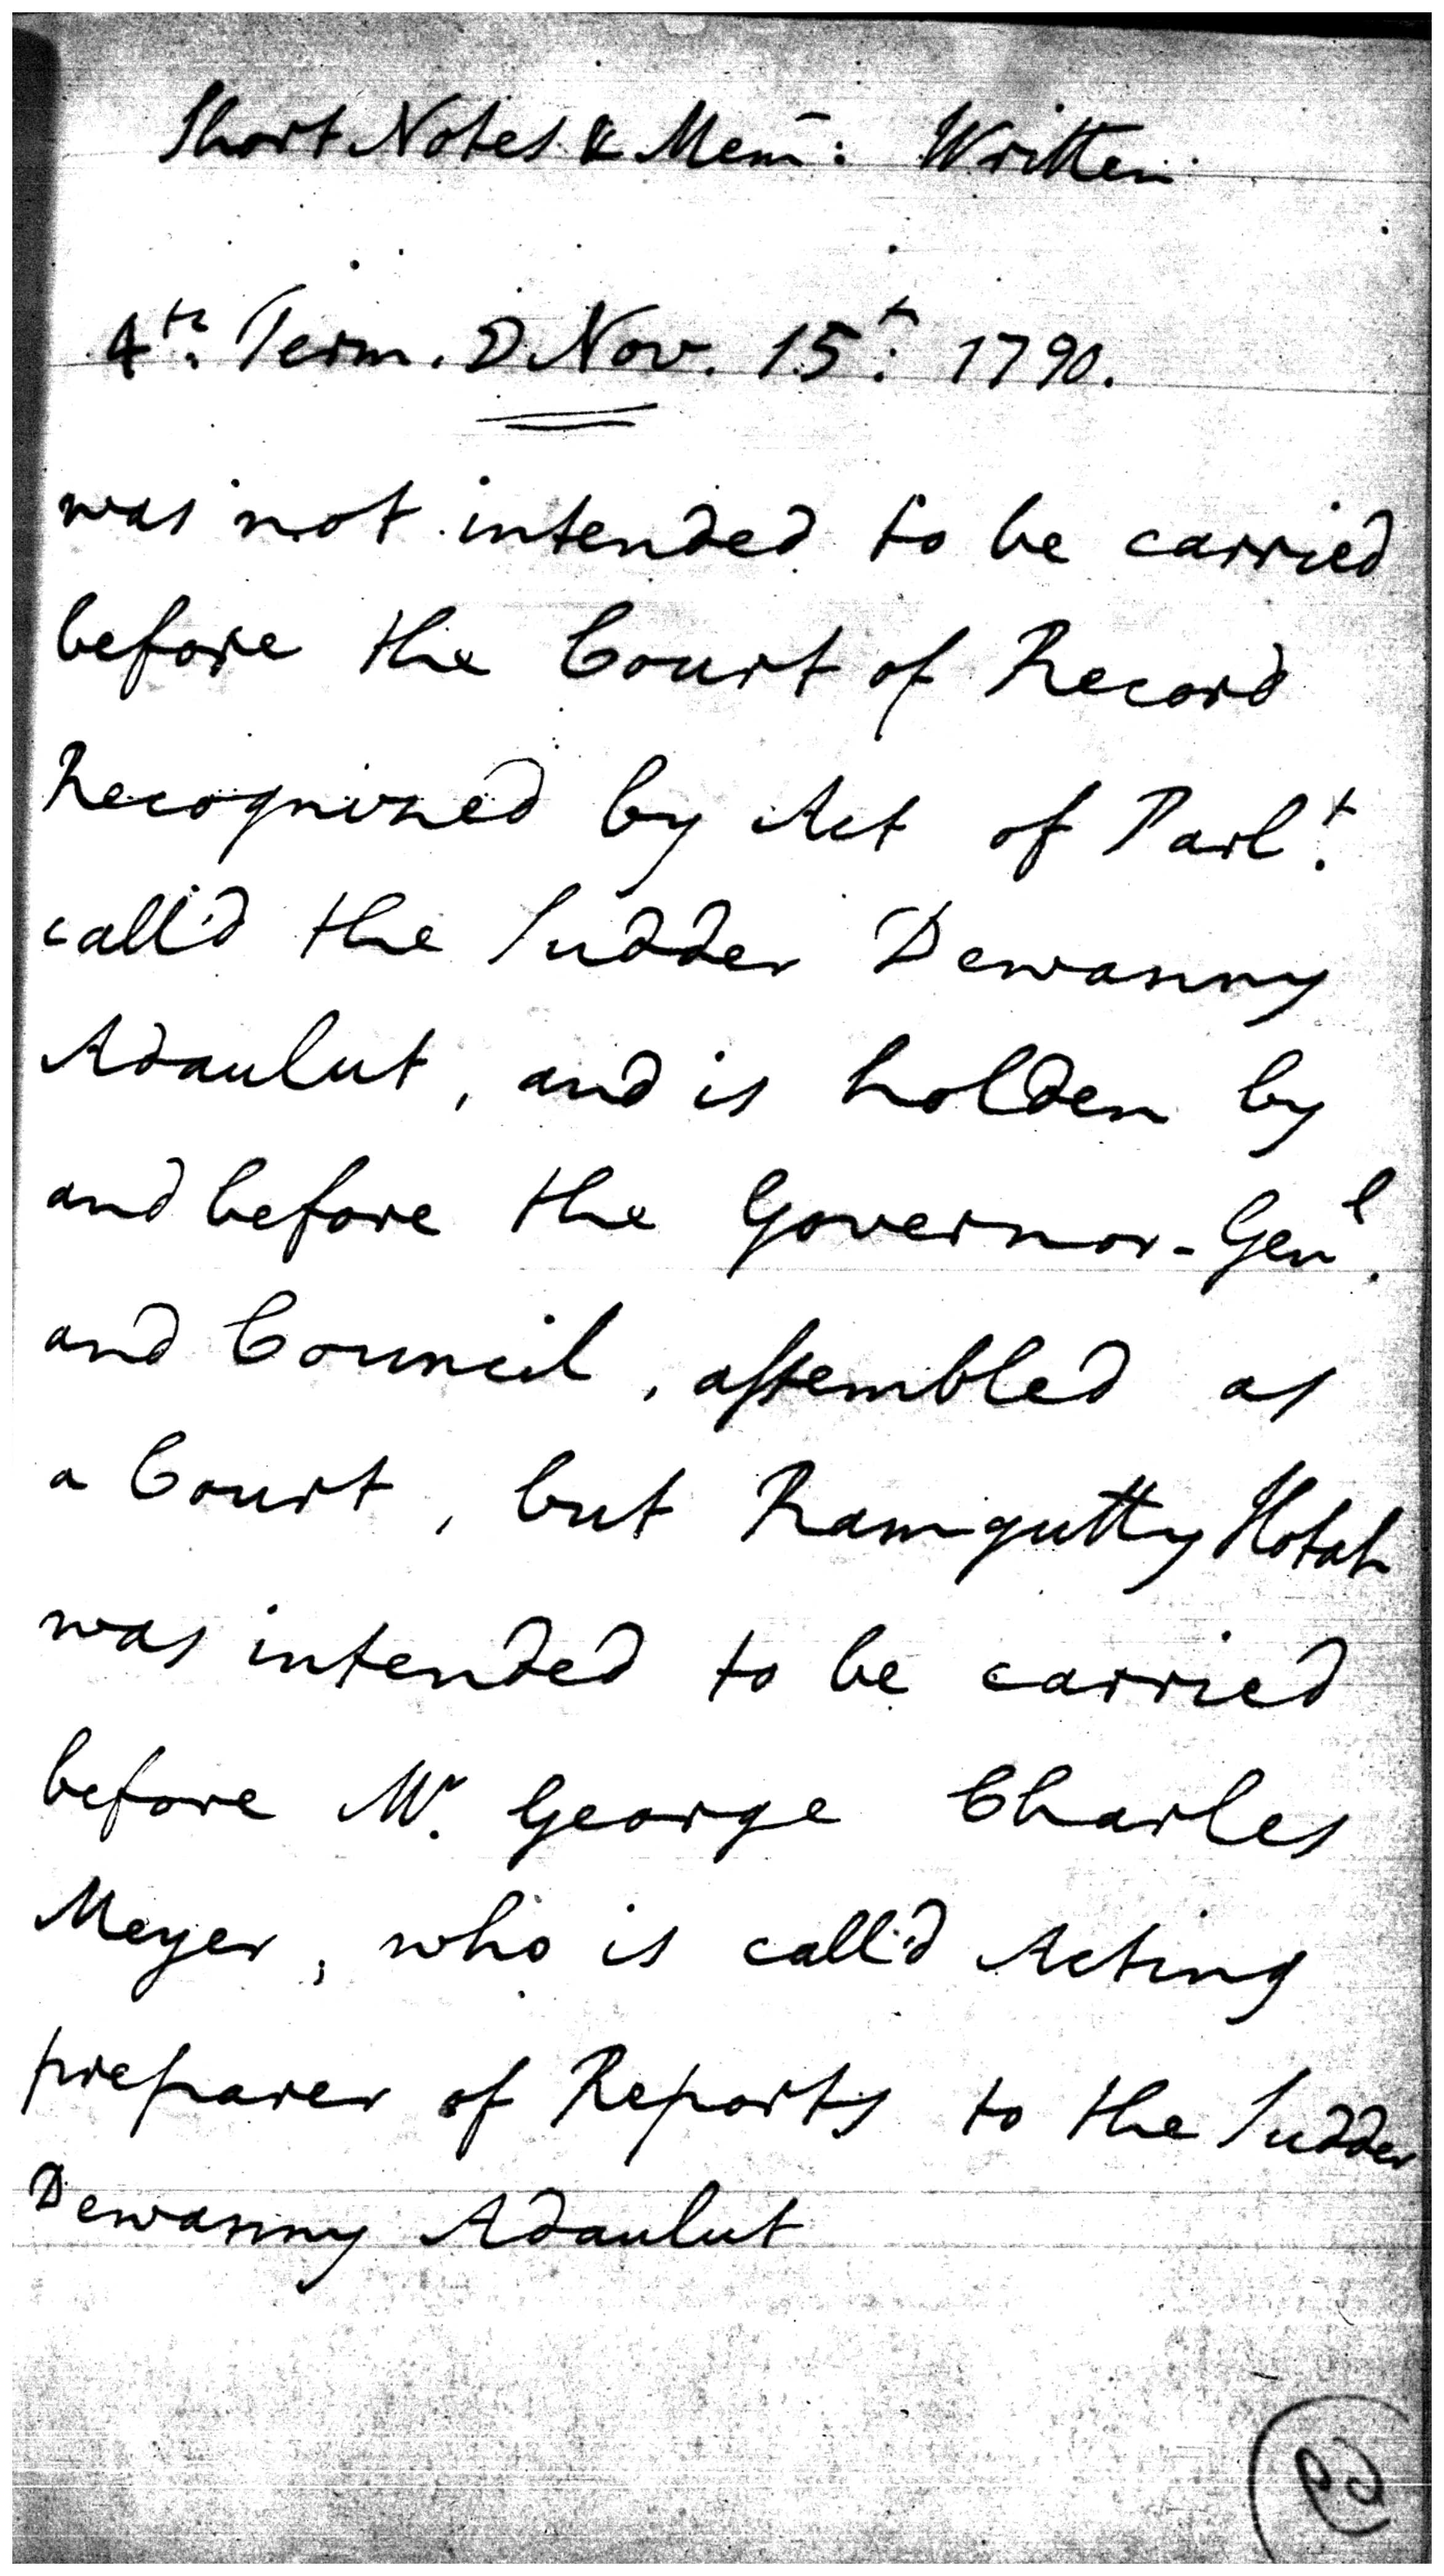 Short Notes & Mem: Written
4th. Term. D Nov. 15th: 1790.
was not intended to be carried
before the Court of Record
Recognized by Act of Parlt.
call'd the Sudder Dewanny
Adaulut, and is holden by
and before the Governor-Genl.
and Council, assembled as
a Court, but Ramgutty Hotah
was intended to be carried
before Mr. George Charles
Meyer, who is call'd Acting
preparer of Reports to the Sudder
Dewanny Adaulut